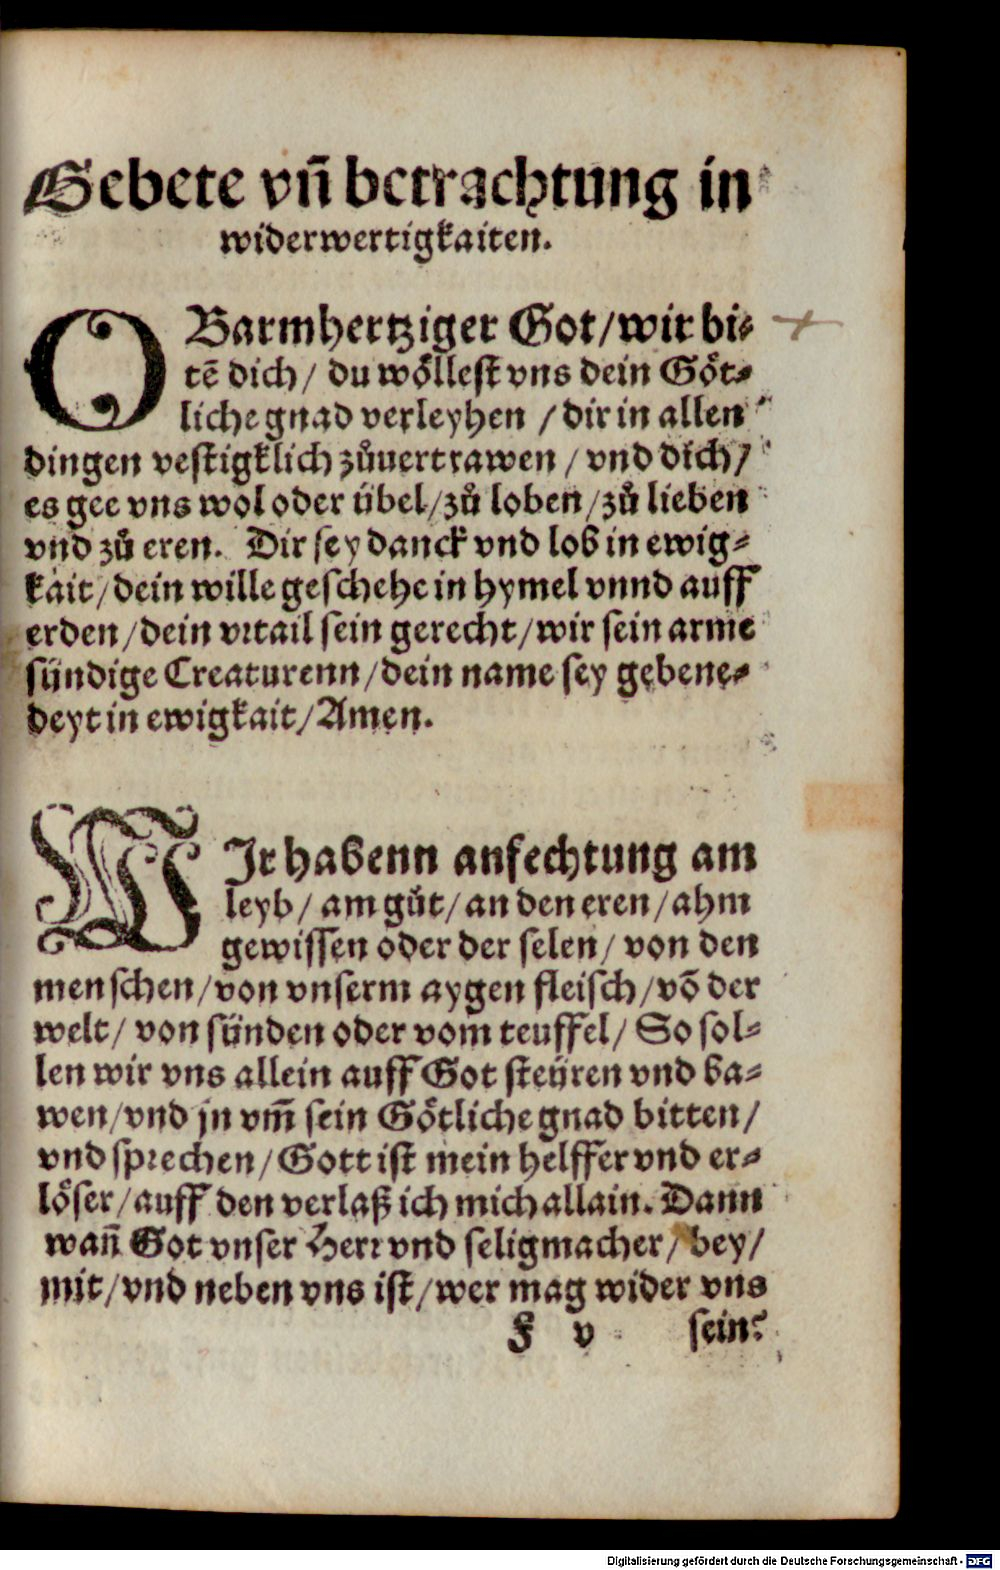 Gebete vñ betrachtung in
widerwertigkaiten.
O Barmhertziger Got/wir bi⸗
tē dich/ du wöllest vns dein Göt⸗
liche gnad verleyhen / dir in allen
dingen vestigklich zůuertrawen / vnd dich/
es gee vns wol oder übel/zů loben/zů lieben
vnd zů eren. Dir sey danck vnd lob in ewig⸗
kait/dein wille geschehe in hymel vnnd auff
erden/dein vrtail sein gerecht/wir sein arme
sündige Creaturenn/dein name sey gebene⸗
deyt in ewigkait/Amen.
WIr habenn anfechtung am
leyb/ am gůt/an den eren/ahm
gewissen oder der selen/ von den
menschen/von vnserm aygen fleisch/vō der
welt/ von sünden oder vom teuffel/ So sol⸗
len wir vns allein auff Got steüren vnd ba⸗
wen/vnd jn vm̄ sein Götliche gnad bitten/
vnd sprechen/Gott ist mein helffer vnd er⸗
löser/auff den verlaß ich mich allain. Dann
wañ Got vnser Herr vnd seligmacher/ bey/
mit/vnd neben vns ist/wer mag wider vns
F v sein?
Digitalisierung gefördert durch die Deutsche Forschungsgemeinschaft - DFG